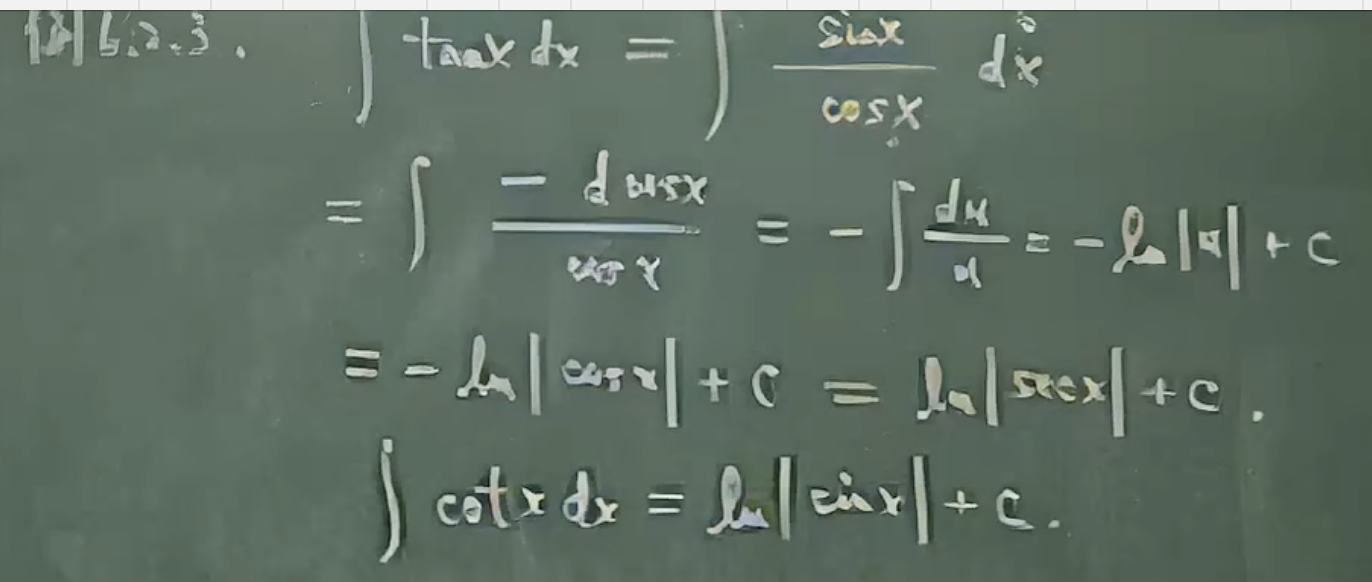 例 6.2.3. ∫ tanx dx = ∫ sinx / cosx dx
= ∫ - d cosx / cos x = - ∫ du / u = - ln |u| + C
= - ln | cos x | + C = ln | secx | + C .
∫ cotx dx = ln | sinx | + C .